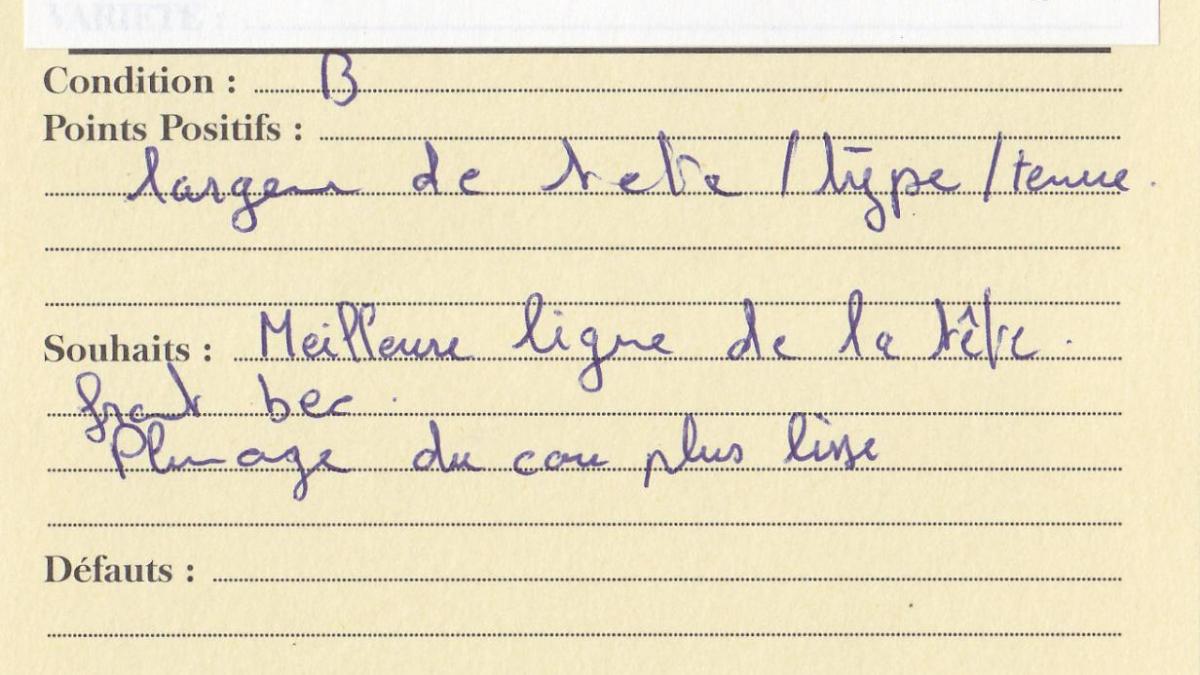 VARIETE :
Condition : B
Points Positifs :
largeur de tete / type / tenue.
Souhaits : Meilleure ligne de la tête.
front bec.
Plumage du cou plus lisse
Défauts :